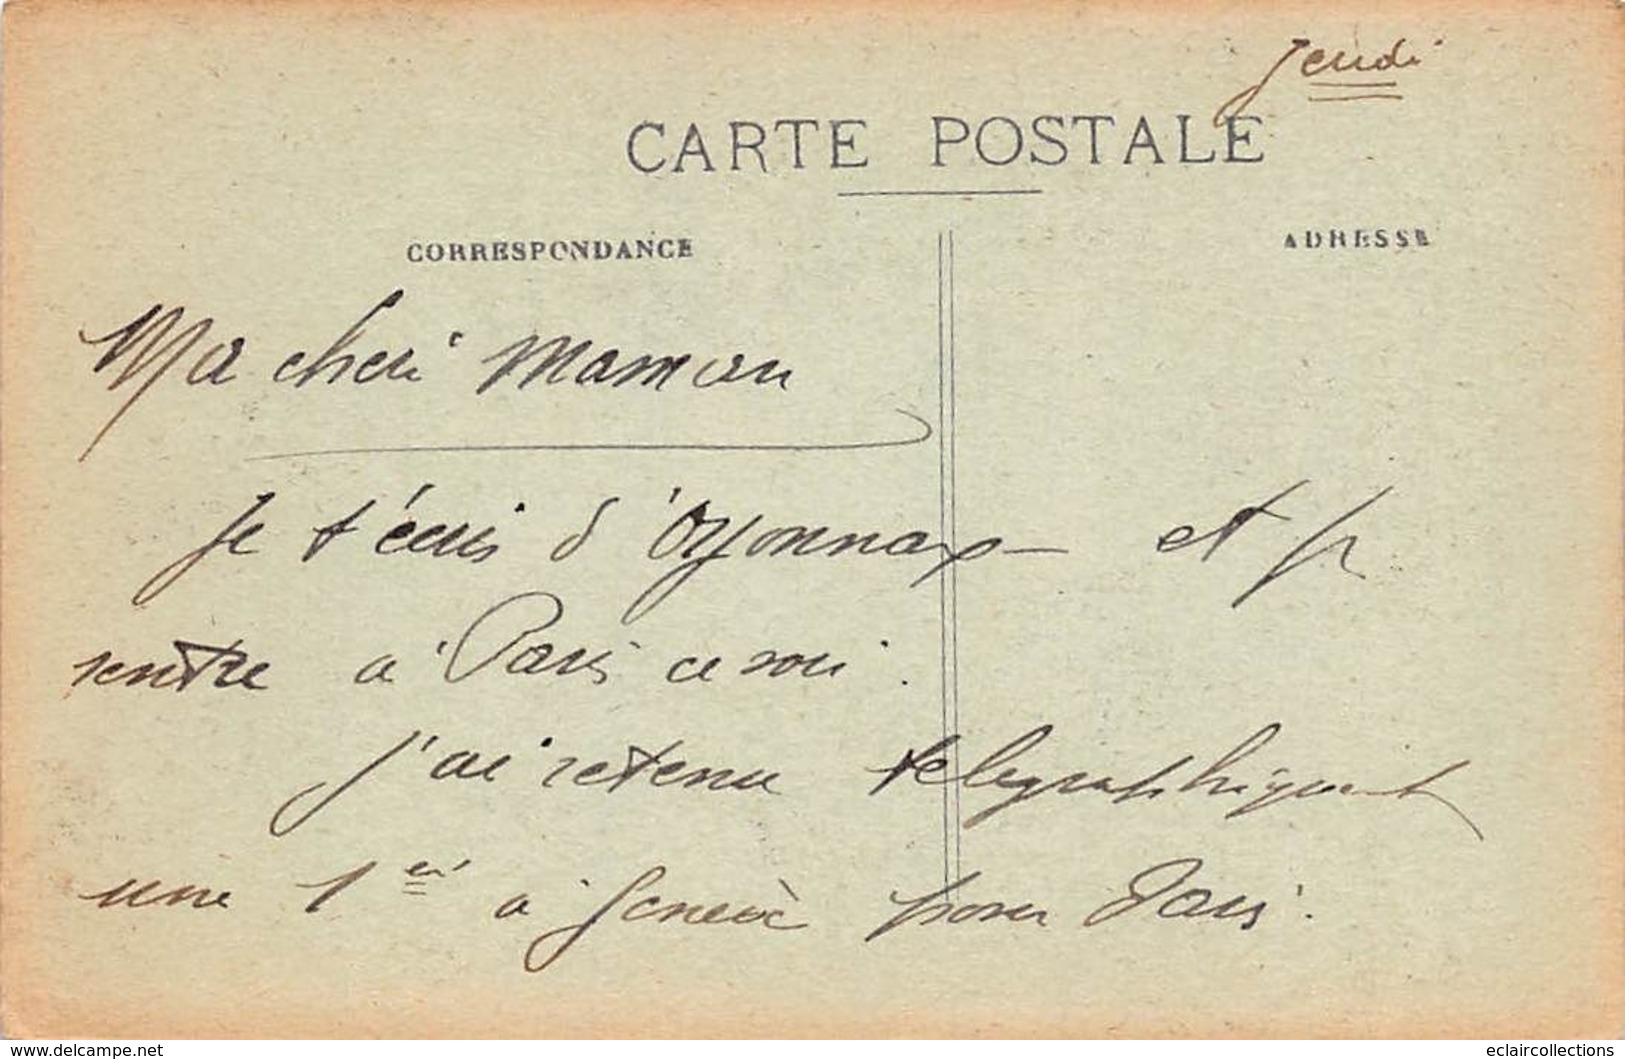 Jeudi
CARTE POSTALE
CORRESPONDANCE
ADRESSE
Ma cheri Maman
Je t'écris d'Oyonnax et je
rentre à Paris ce soir.
j'ai retenu telegraphiquement
une 1ere à Genève pour Paris.
www.delcampe.net
eclaircollections